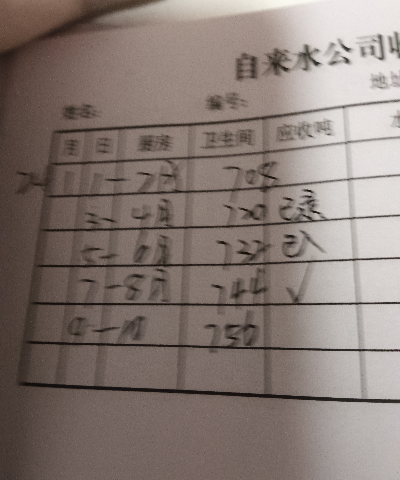 自来水公司收
姓名: 编号: 地址
月 日 厨房 卫生间 应收吨 水
24 11 1-2月 708
3-4月 720 已录
5-6月 732 已入
7-8月 744 √
9-10 750